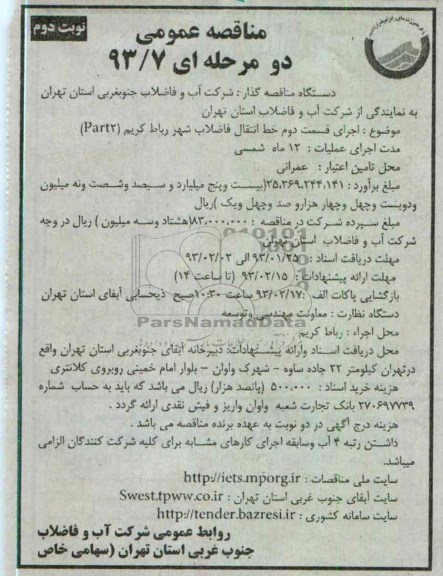 نوبت دوم
مناقصه عمومی
دو مرحله ای ۹۳/۷
دستگاه مناقصه گذار : شرکت آب و فاضلاب جنوبغربی استان تهران
به نمایندگی از شرکت آب و فاضلاب استان تهران
موضوع : اجرای قسمت دوم خط انتقال فاضلاب شهر رباط کریم (Part۲)
مدت اجرای عملیات : ۱۲ ماه شمسی
محل تامین اعتبار : عمرانی
مبلغ برآورد : ۲۵،۳۶۹،۲۴۴،۱۴۱(بیست وپنج میلیارد و سیصد وشصت ونه میلیون
ودویست وچهل وچهار هزارو صد وچهل ویک )ریال
مبلغ سپرده شرکت در مناقصه : ۸۳،۰۰۰،۰۰۰(هشتاد وسه میلیون ) ریال در وجه
شرکت آب و فاضلاب استان تهران
مهلت دریافت اسناد : ۹۳/۰۱/۲۵ الی ۹۳/۰۲/۰۲
مهلت ارائه پیشنهادات : ۹۳/۰۲/۱۵ (تا ساعت ۱۴)
بازگشایی پاکات الف :۹۳/۰۲/۱۷ ساعت ۱۰:۳۰صبح ذیحسابی آبفای استان تهران
دستگاه نظارت : معاونت مهندسی وتوسعه
ParsNamadData
محل اجراء : رباط کریم
محل دریافت اسناد وارائه پیشنهادات: دبیرخانه آبفای جنوبغربی استان تهران واقع
درتهران کیلومتر ۲۲ جاده ساوه – شهرک واوان – بلوار امام خمینی روبروی کلانتری
هزینه خرید اسناد : ۵۰۰،۰۰۰ (پانصد هزار) ریال می باشد که باید به حساب شماره
۲۷۰۶۹۷۷۳۹ بانک تجارت شعبه واوان واریز و فیش نقدی ارائه گردد .
هزینه درج آگهی در دو نوبت به عهده برنده مناقصه می باشد .
داشتن رتبه ۴ آب وسابقه اجرای کارهای مشابه برای کلیه شرکت کنندگان الزامی
میباشد.
سایت ملی مناقصات : http://iets.mporg.ir
سایت آبفای جنوب غربی استان تهران : Swest.tpww.co.ir
سایت سامانه کشوری : http://tender.bazresi.ir
روابط عمومی شرکت آب و فاضلاب
جنوب غربی استان تهران (سهامی خاص